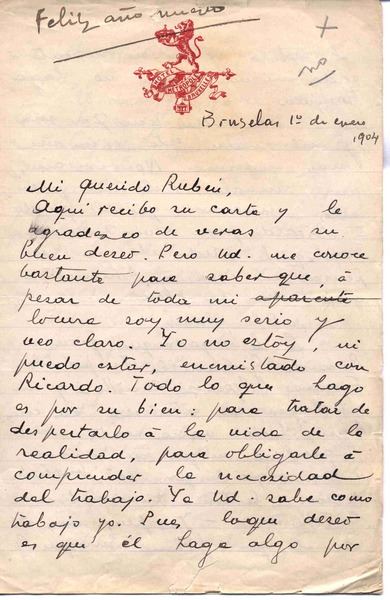 Feliz año nuevo
no
HOTEL METROPOLE BRUXELLES
Bruselas 1º de enero
1904
Mi querido Rubén,
Aquí recibo su carta y le
agradezco de veras su
buen deseo. Pero Ud. me conoce
bastante para saber que, á
pesar de toda mi aparente
locura soy muy serio y
veo claro. Yo no estoy, ni
puedo estar, enemistado con
Ricardo. Todo lo que hago
es por su bien: para tratar de
despertarlo á la vida de la
realidad, para obbligarle á
comprender la necesidad
del trabajo. Ya Ud. sabe como
trabajo yo. Pues loque deseo
es que él haga algo por